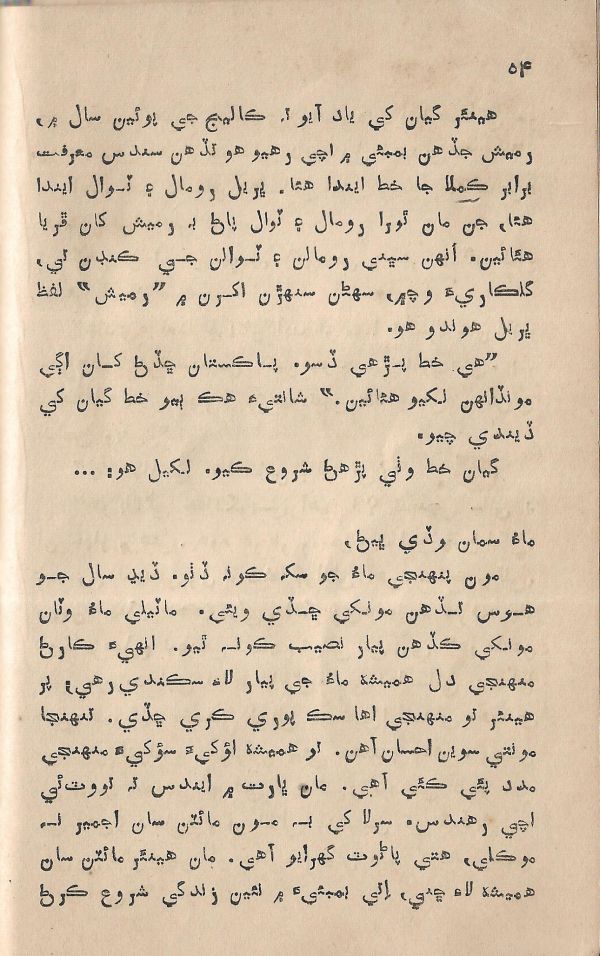 ۵۴
هينئر گيان کي ياد آيو تہ ڪاليج جي پوئين سال ۾،
رميش جڏهن بمبئي ۾ اچي رهيو هو تڏهن سندس معرفت
برابر ڪملا جا خط ايندا هئا. ڀريل رومال ۽ ٽوال ايندا
هئا، جن مان ٿورا رومال ۽ ٽوال پاڻ بہ رميش کان ڦريا
هئائين. انهن سڀني رومالن ۽ ٽوالن جي ڪنڊن تي،
گلڪاريءَ وچ۾، سهڻن سنهڙن اکرن ۾ ”رميش“ لفظ
ڀريل هوندو هو.
”هي خط پڙهي ڏسو. پاڪستان ڇڏڻ کان اڳي
مونڏانهن لکيو هئائين.“ شانتيءَ هڪ ٻيو خط گيان کي
ڏيندي چيو.
گيان خط وٺي پڙهڻ شروع ڪيو. لکيل هو: ...
ماءُ سمان وڏي ڀيڻ،
مون پنهنجي ماءُ جو سک ڪونہ ڏٺو. ڏيڍ سال جو
هوس تڏهن مونکي ڇڏي ويئي. ماٽيلي ماءُ وٽان
مونکي ڪڏهن پيار نصيب ڪونہ ٿيو. انهيءَ ڪارڻ
منهنجي دل هميشہ ماءُ جي پيار لاءِ سڪندي رهي؛ پر
هينئر تو منهنجي اها سڪ پوري ڪري ڇڏي. تنهنجا
مونتي سوين احسان آهن. تو هميشہ اؤکيءَ سؤکيءَ منهنجي
مدد پئي ڪئي آهي. مان ڀارت ۾ ايندس تہ تووٽئي
اچي رهندس. سرلا کي بہ مون مائٽن سان اجمير نہ
موڪلي، هتي پاڻوٽ گهرايو آهي. مان هينئر مائٽن سان
هميشہ لاءِ ڇني، اتي بمبئيءَ ۾ نئين زندگي شروع ڪرڻ